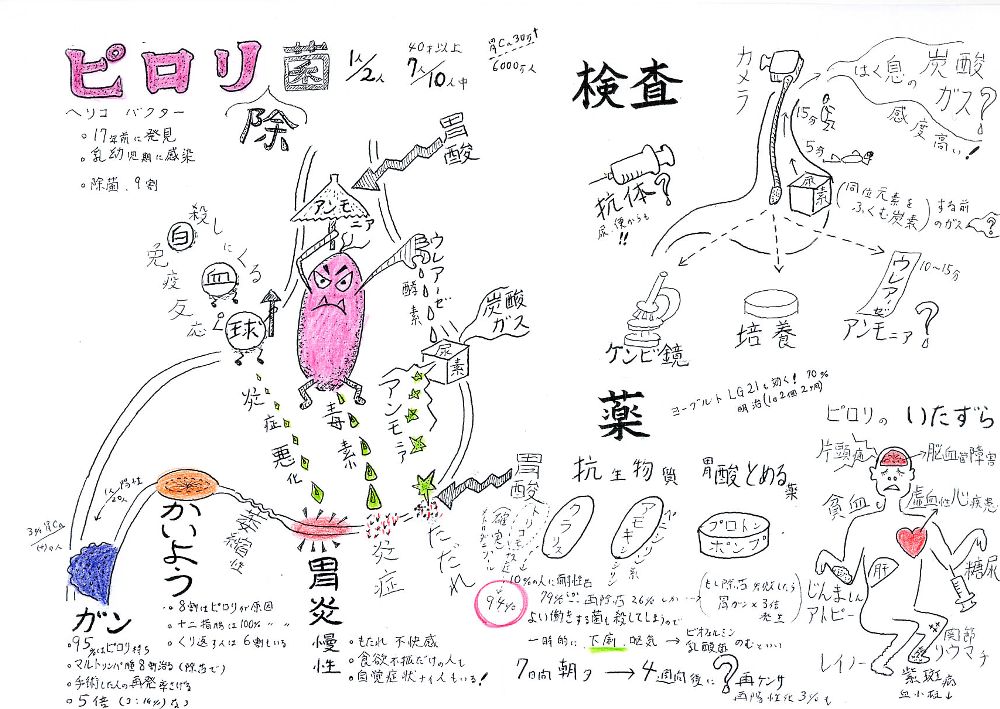 ピロリ菌
除
1人/2人
40才以上
7人/10人中
胃Ca30万↑
6000万人
ヘリコ バクター
○17年前に発見
○乳幼児期に感染
○除菌、9割
胃酸
アンモニア
ウレアーゼ
酵素
炭酸ガス
尿素
アンモニア
殺しにくる
免疫反応
白
血
球
炎症悪化
毒素
胃酸
ただれ
炎症
萎縮性
かいよう
○8割はピロリが原因
○十二指腸は100% 〃 〃
○くり返す人は6割もいる
ガン
○95%はピロリ持ち
○マルトリンパ腫8割治る(除菌で)
○手術した人の再発率さげる
○5倍
胃炎
慢性
○もたれ 不快感
○食欲不振だけの人も
○自覚症状ナイ人もいる!
検査
カメラ
はく息の炭酸ガス?
感度高い!
15分
5分
尿素
(同位元素をふくむ炭素)
する前のガス
抗体?
尿、便からも!!
ケンビ鏡
培養
ウレアーゼ
10〜15分
アンモニア?
薬
ヨーグルトLG21も効く! 70%
明治(1日2個2ヶ月)
抗生物質
胃酸とめる薬
クラリス
アモキシシリン
ペニシリン系
プロトンポンプ
10%の人に耐性菌
94%
よい働きする菌も殺してしまうので
一時的に 下痢 吐気 → ビオフェルミン
乳酸菌のむといい
(もし除菌失敗したら
胃がン×3倍
発生)
7日間 朝夕 → 4週間後に?再ケンサ
再陽性化3%も
ピロリの いたずら
片頭痛
脳血管障害
貧血
虚血性心疾患
肝
糖尿
じんましん
アトピー
関節リウマチ
レイノー
紫斑病
血小板↓